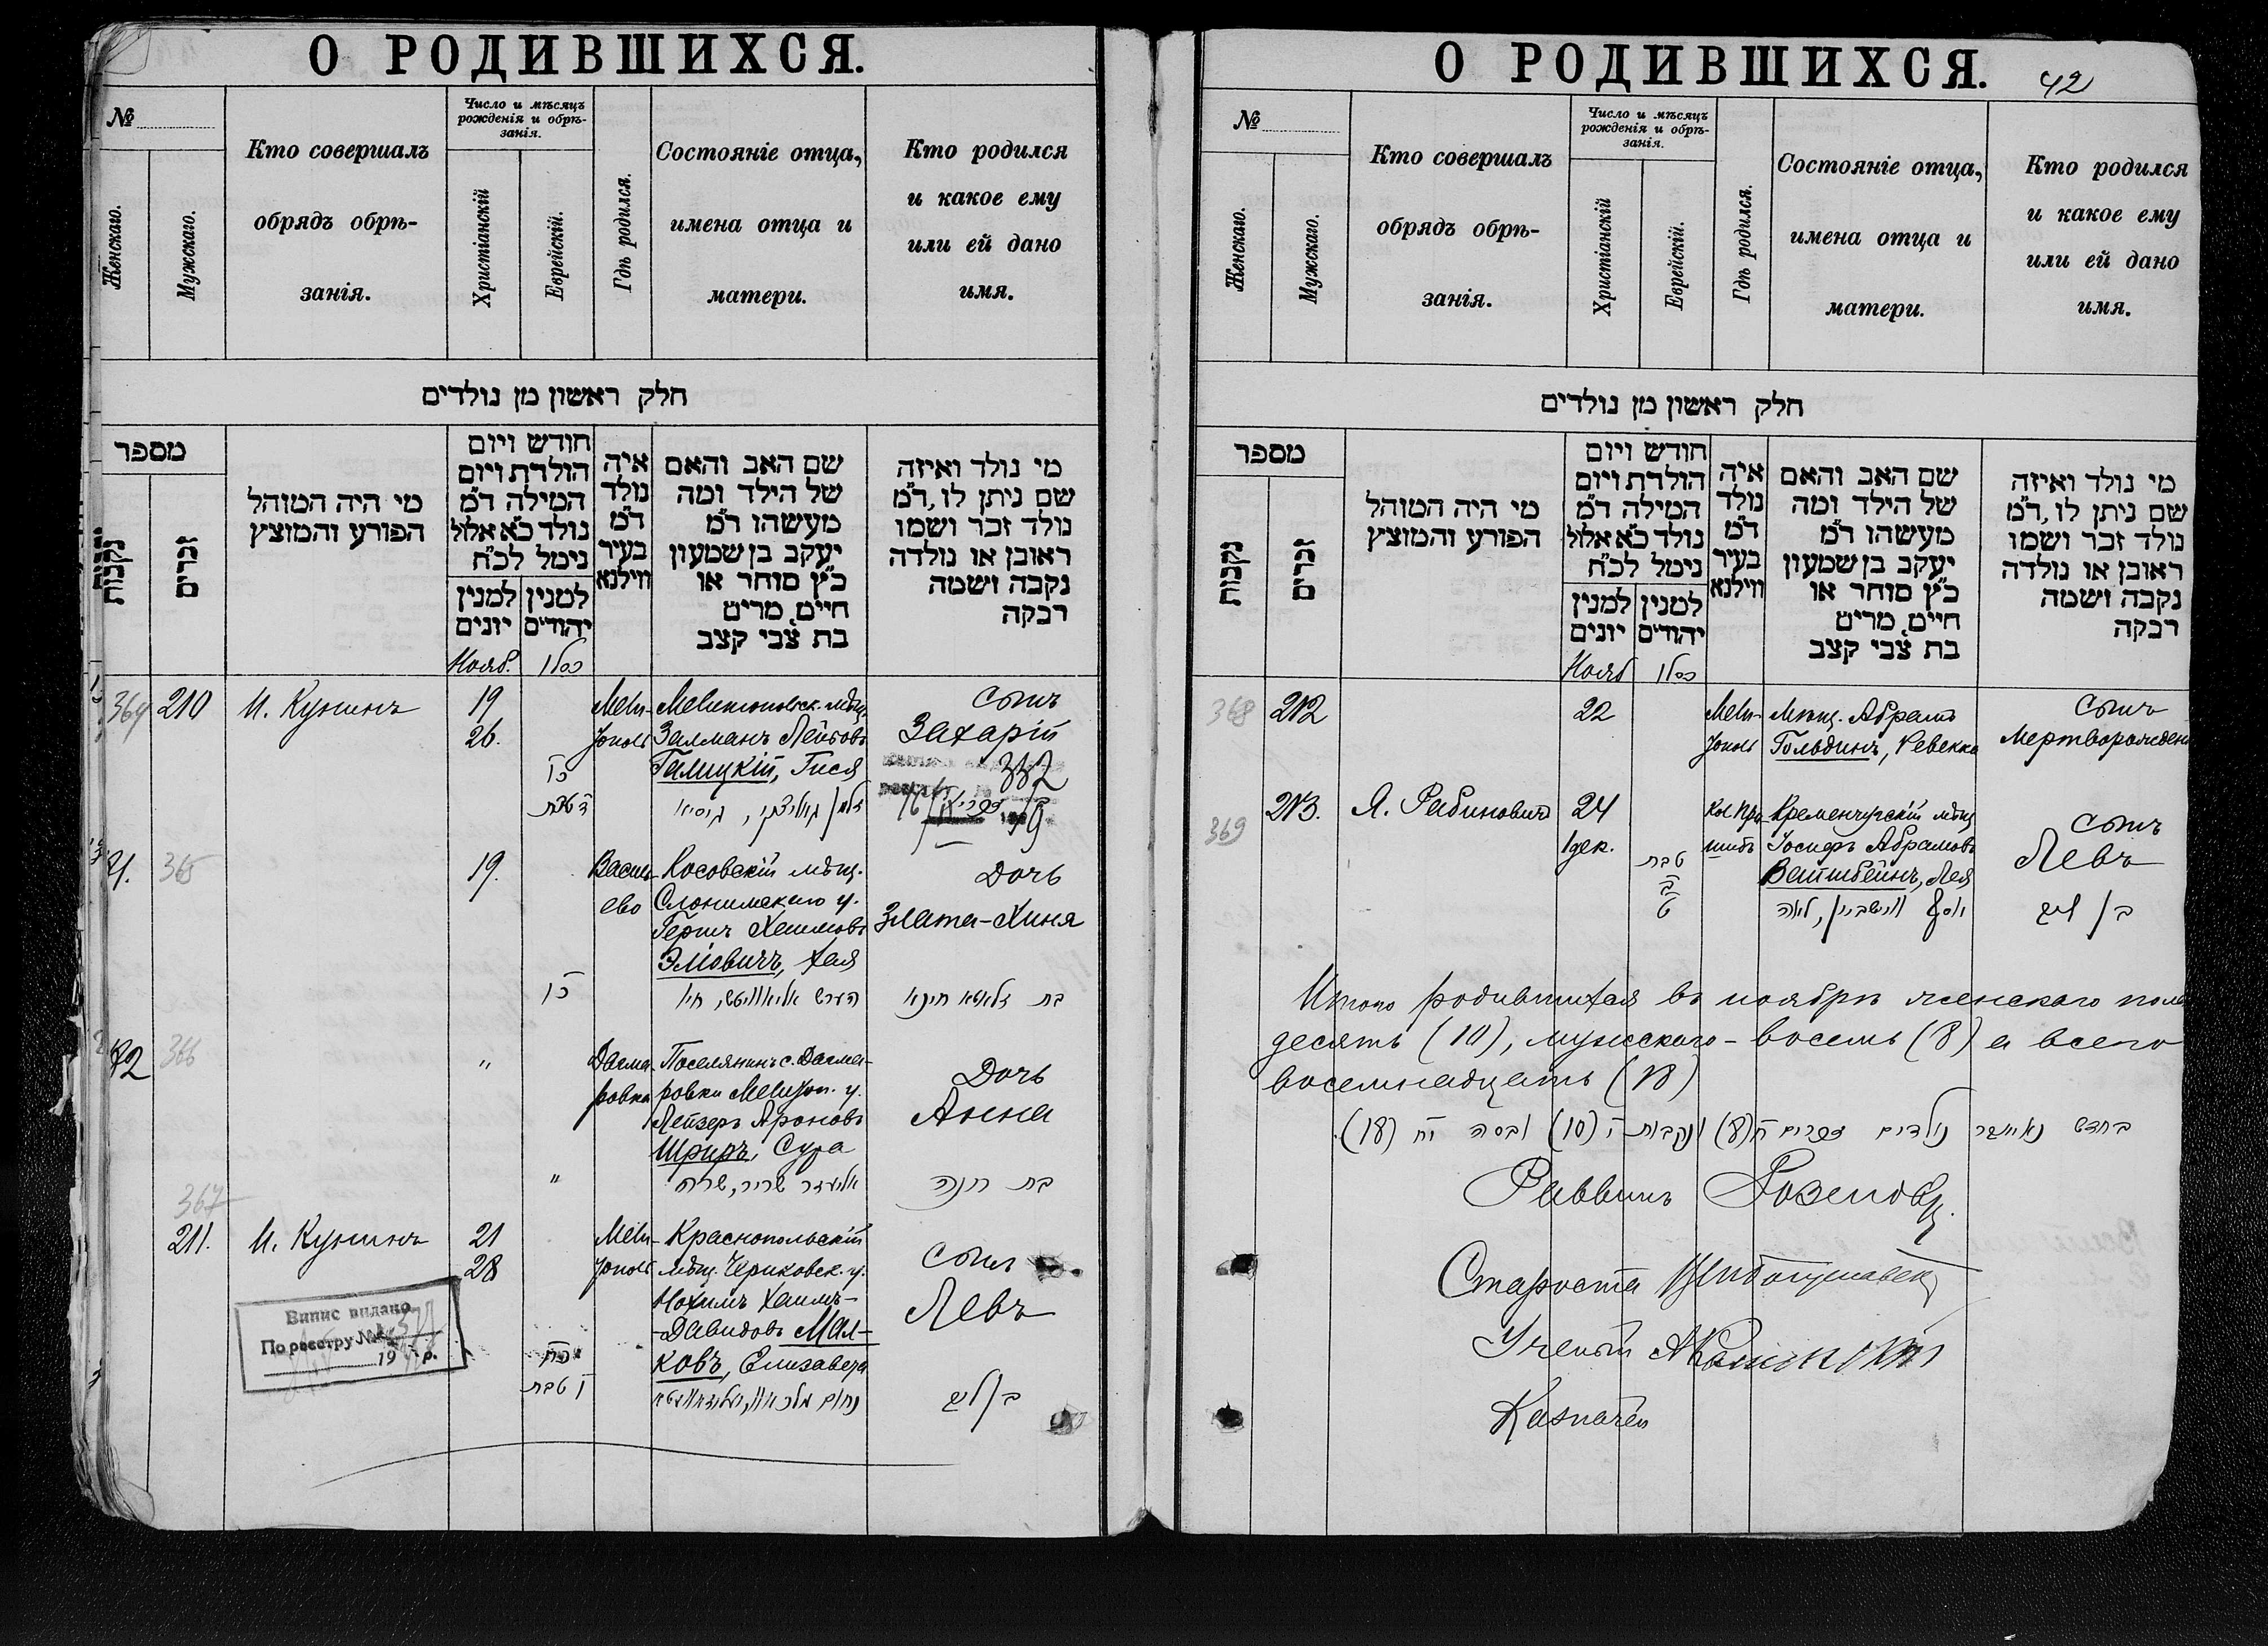 О РОДИВШИХСЯ.
№
Женскаго.
Мужскаго.
Кто совершалъ
обрядъ обрѣ-
занія.
Число и мѣсяцъ
рожденія и обрѣ-
занія.
Христіанскій
Еврейскій.
Гдѣ родился.
Состояніе отца,
имена отца и
матери.
Кто родился
и какое ему
или ей дано
имя.
חלק ראשון מן נולדים
מספר
נקבות
זכרים
מי היה המוהל
הפורע והמוצץ
חודש ויום
הולדת ויום
המילה ד״מ
נולד כ״א אלול
נימל לכ״ח
למנין יונים
למנין יהודים
איה
נולד
ד״מ
בעיר
ווילנא
שם האב והאם
של הילד ומה
מעשהו ד״מ
יעקב בן שמעון
כ״ץ סוחר או
חיים, מרים
בת צבי קצב
מי נולד ואיזה
שם ניתן לו, ד״מ
נולד זכר ושמו
ראובן או נולדה
נקבה ושמה
רבקה
Нояб. כסלו
364 210 И. Кунинъ 19 Мели- Мелитопольск. мѣщ. Сынъ
26. тополь Залманъ Лейбовъ Захарій
כו Галицкій, Гися 332
ד טבת זלמן גאליצקי, גיסיא
71. 365 19. Василь- Косовскій мѣщ. Дочь
ево Слонимскаго у.
Гершъ Хаимовъ Злата-Хиня
Эліовичъ, Хая
כו הערש אליאוויטש, חיה בת זלאטא חינא
72 366 " Дагма- Поселянинъ с. Дагма- Дочь
ровка ровки Мелитоп. у. Анна
Лейзеръ Ароновъ
Шриръ, Сура
" אליעזר שריר, שרה
367
211. И. Кунинъ 21 Мели- Краснопольскій Сынъ
28 тополь мѣщ. Чериковск. у.
Нохимъ Хаимъ- Левъ
-Давидовъ Мал-
כח ковъ, Елизавета
ו טבת
Випис видано
По реєстру №
19 р.
О РОДИВШИХСЯ. 42
№
Женскаго.
Мужскаго.
Кто совершалъ
обрядъ обрѣ-
занія.
Число и мѣсяцъ
рожденія и обрѣ-
занія.
Христіанскій
Еврейскій.
Гдѣ родился.
Состояніе отца,
имена отца и
матери.
Кто родился
и какое ему
или ей дано
имя.
חלק ראשון מן נולדים
מספר
נקבות
זכרים
מי היה המוהל
הפורע והמוצץ
חודש ויום
הולדת ויום
המילה ד״מ
נולד כ״א אלול
נימל לכ״ח
למנין יונים
למנין יהודים
איה
נולד
ד״מ
בעיר
ווילנא
שם האב והאם
של הילד ומה
מעשהו ד״מ
יעקב בן שמעון
כ״ץ סוחר או
חיים, מרים
בת צבי קצב
מי נולד ואיזה
שם ניתן לו, ד״מ
נולד זכר ושמו
ראובן או נולדה
נקבה ושמה
רבקה
Нояб כסלו
368 212 22 Мели- Мѣщ. Абрамъ Сынъ
тополь Гольдинъ, Ревекка Мертворожден
369 213. Я. Рабиновичъ 24 Кременчугскій мѣщ Сынъ
1 дек. Іосифъ Абрамовъ Левъ
טבת Вайнштейнъ, Лея
ט
Итого родившихся въ ноябрѣ женскаго пола
десять (10), мужскаго - восемь (8) а всего
восемнадцать (18)
בחדש נאיאבר נולדים זכרים ח (8) ונקבות י (10) ובסה יח (18).
Раввинъ
Староста
Ученый
Казначей